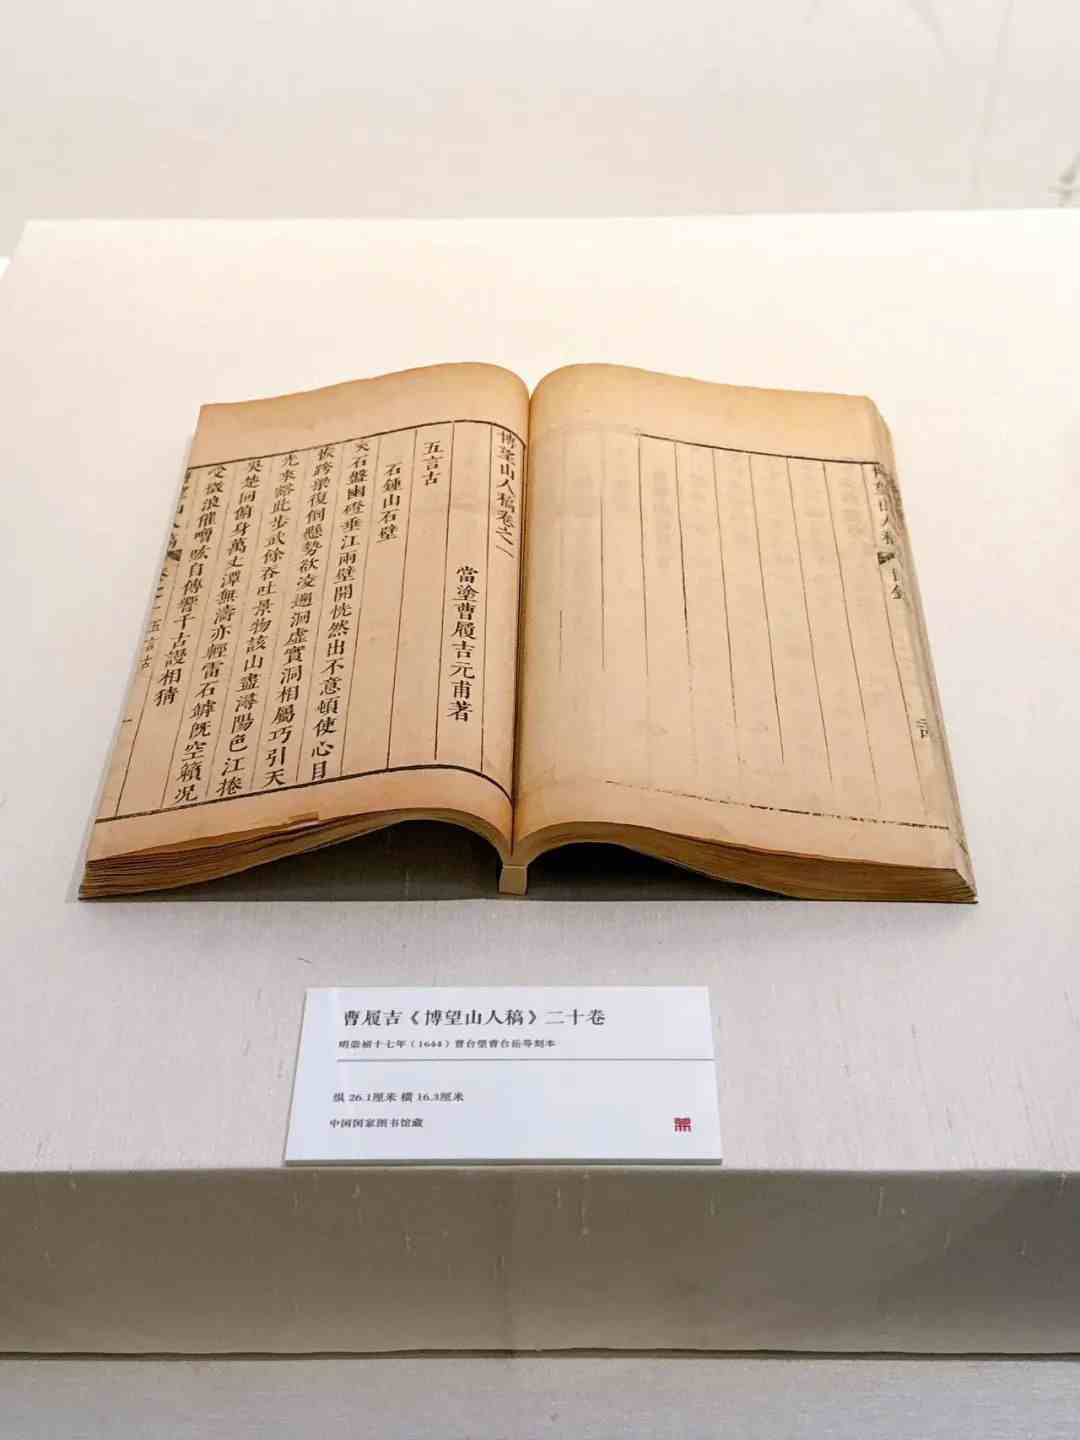 博望山人稿
目錄
博望山人稿卷之一
當塗曹履吉元甫著
五言古
石鍾山石壁
石盤幽磴垂江兩壁開恍然出不意頓使心目
恢跨梁復懸勢欲凌洞虛實洞相屬巧引天
光來豁此步武餘吞吐景物該山盡潯陽色江捲
吳楚回俯身萬丈潭無濤亦輕雷石罅旣空籟况
受微浪催噌吰自傳響千古謾相猜
博望山人稿 卷之一 五言古 一
曹履吉《博望山人稿》二十卷
明崇祯十七年（1644）曹台望曹台岳等刻本
纵 26.1厘米 横 16.3厘米
中国国家图书馆藏